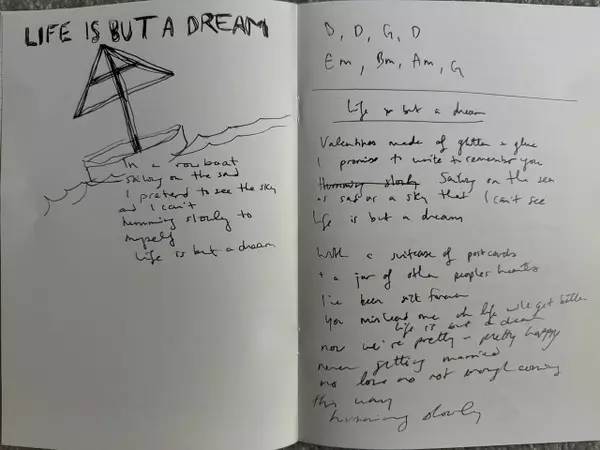 LIFE IS BUT A DREAM
In a rowboat
sailing on the sand
I pretend to see the sky
and I can't
humming slowly to
myself
life is but a dream
D, D, G, D
Em, Bm, Am, G
Life is but a dream
Valentines made of glitter + glue
I promise to write to remember you
Humming slowly Sailing on the sea
as sad as a sky that I can't see
life is but a dream
With a suitcase of postcards
+ a jar of other peoples hearts
I've been forever
You mislead me oh life will get better
life is but a dream
now we're pretty + pretty happy
never getting married
no love no not enough coming
this way
humming slowly